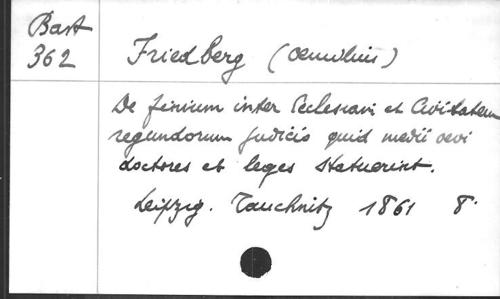 Bast
362
Friedberg (Oemilius)
De finium inter Ecclesiam et Civitatem
regundorum judicio quid medii oevi
doctores et leges statuerint.
Leipzig. Tauchnitz 1861 8°